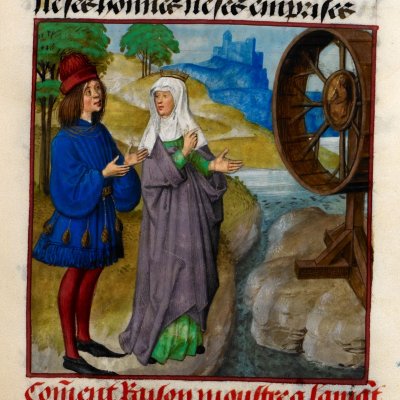 ne ses bonnes ne ses emprises
Com̃ent Raison moustre a lamãt